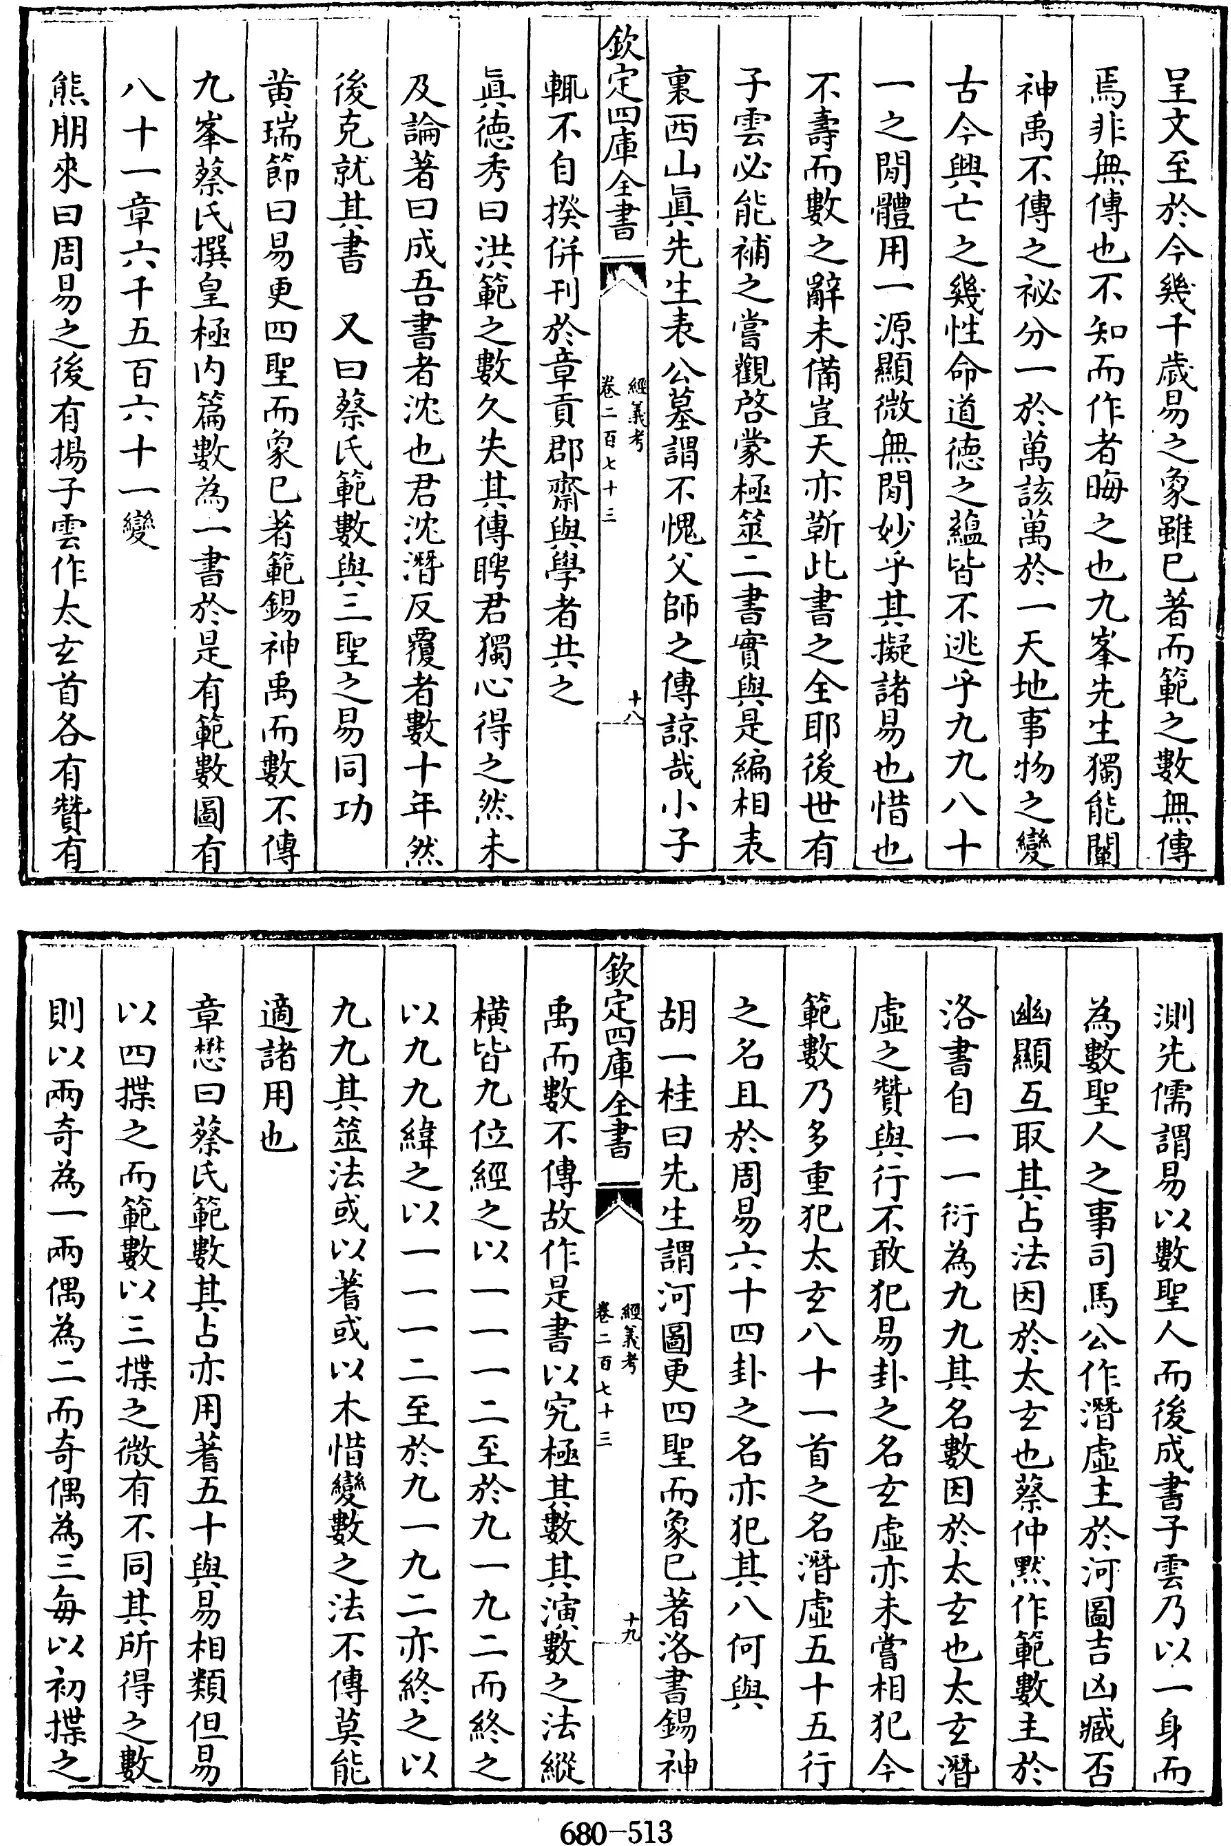 呈文至於今幾千歲易之象雖已著而範之數無傳
焉非無傳也不知而作者晦之也九峯先生獨能闡
神禹不傳之祕分一於萬該萬於一天地事物之變
古今興亡之幾性命道德之蘊皆不逃乎九九八十
一之閒體用一源顯微無閒妙乎其擬諸易也惜也
不壽而數之辭未備豈天亦靳此書之全耶後世有
子雲必能補之嘗觀啓蒙極筮二書實與是編相表
裏西山眞先生表公墓謂不愧父師之傳諒哉小子
欽定四庫全書
經義考
卷二百七十三
十八
輒不自揆併刊於章貢郡齋與學者共之
眞德秀曰洪範之數久失其傳聘君獨心得之然未
及論著曰成吾書者沈也君沈潛反覆者數十年然
後克就其書　又曰蔡氏範數與三聖之易同功
黄瑞節曰易更四聖而象已著範錫神禹而數不傳
九峯蔡氏撰皇極内篇數為一書於是有範數圖有
八十一章六千五百六十一變
熊朋來曰周易之後有揚子雲作太玄首各有贊有
測先儒謂易以數聖人而後成書子雲乃以一身而
為數聖人之事司馬公作潛虛主於河圖吉凶臧否
幽顯互取其占法因於太玄也蔡仲黙作範數主於
洛書自一一衍為九九其名數因於太玄也太玄潛
虛之贊與行不敢犯易卦之名玄虛亦未嘗相犯今
範數乃多重犯太玄八十一首之名潛虛五十五行
之名且於周易六十四卦之名亦犯其八何與
胡一桂曰先生謂河圖更四聖而象已著洛書錫神
欽定四庫全書
經義考
卷二百七十三
十九
禹而數不傳故作是書以究極其數其演數之法縱
横皆九位經之以一一一二至於九一九二而終之
以九九緯之以一一一二至於九一九二亦終之以
九九其筮法或以蓍或以木惜變數之法不傳莫能
適諸用也
章懋曰蔡氏範數其占亦用蓍五十與易相類但易
以四揲之而範數以三揲之微有不同其所得之數
則以兩奇為一兩偶為二而奇偶為三每以初揲之
680-513